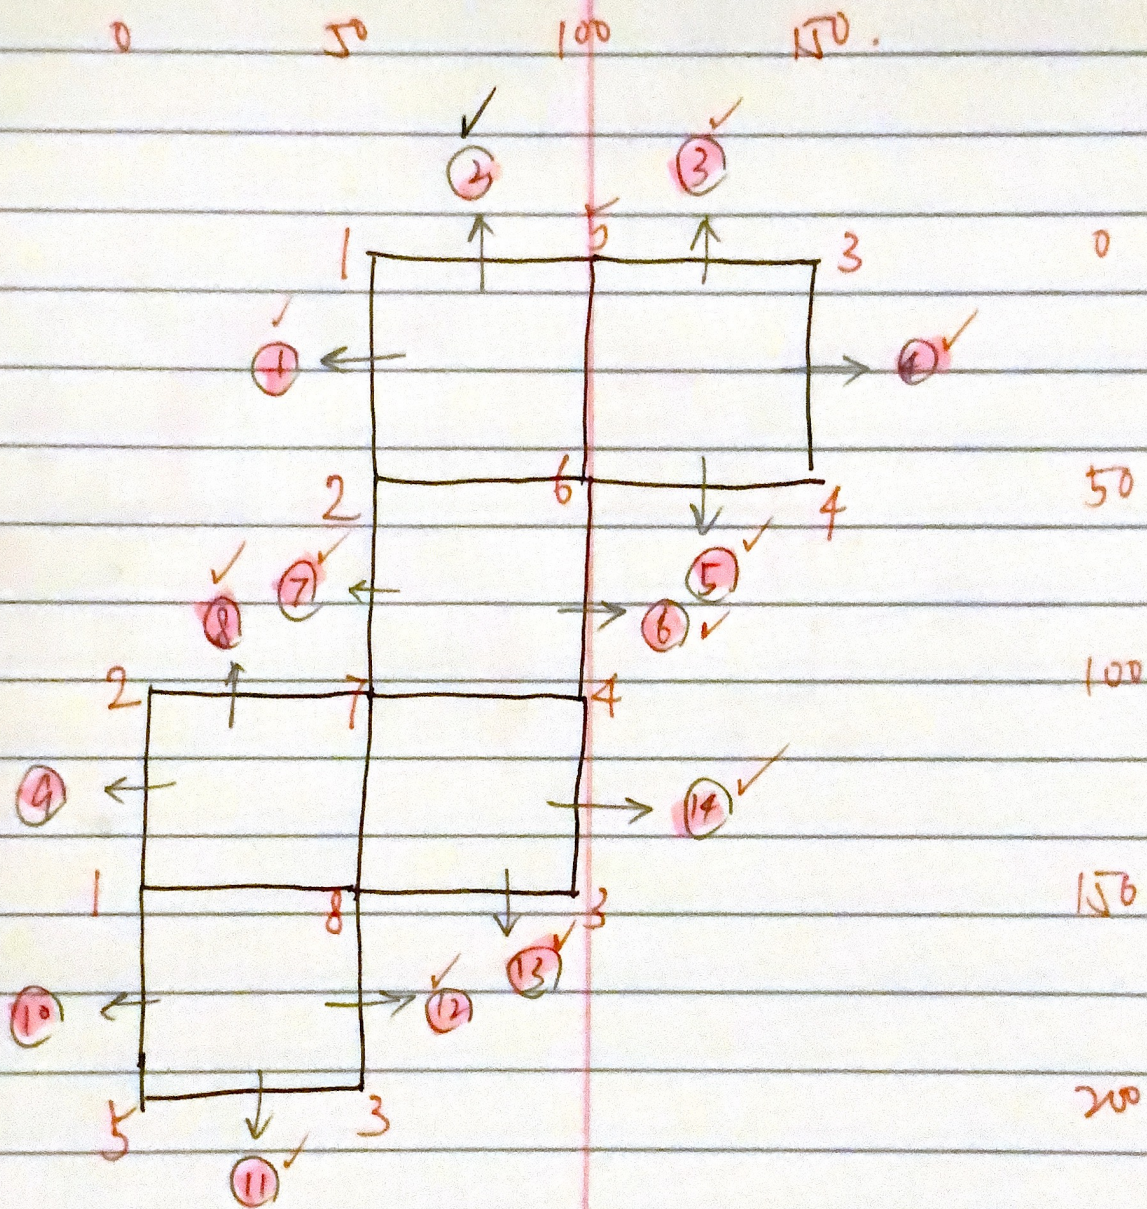 0 50 100 150.
2 3
1 5 3 0
1
2 6 4 50
7 5
8 6
2 7 4 100
9 14
1 8 3 150
13
10 12
5 3 200
11